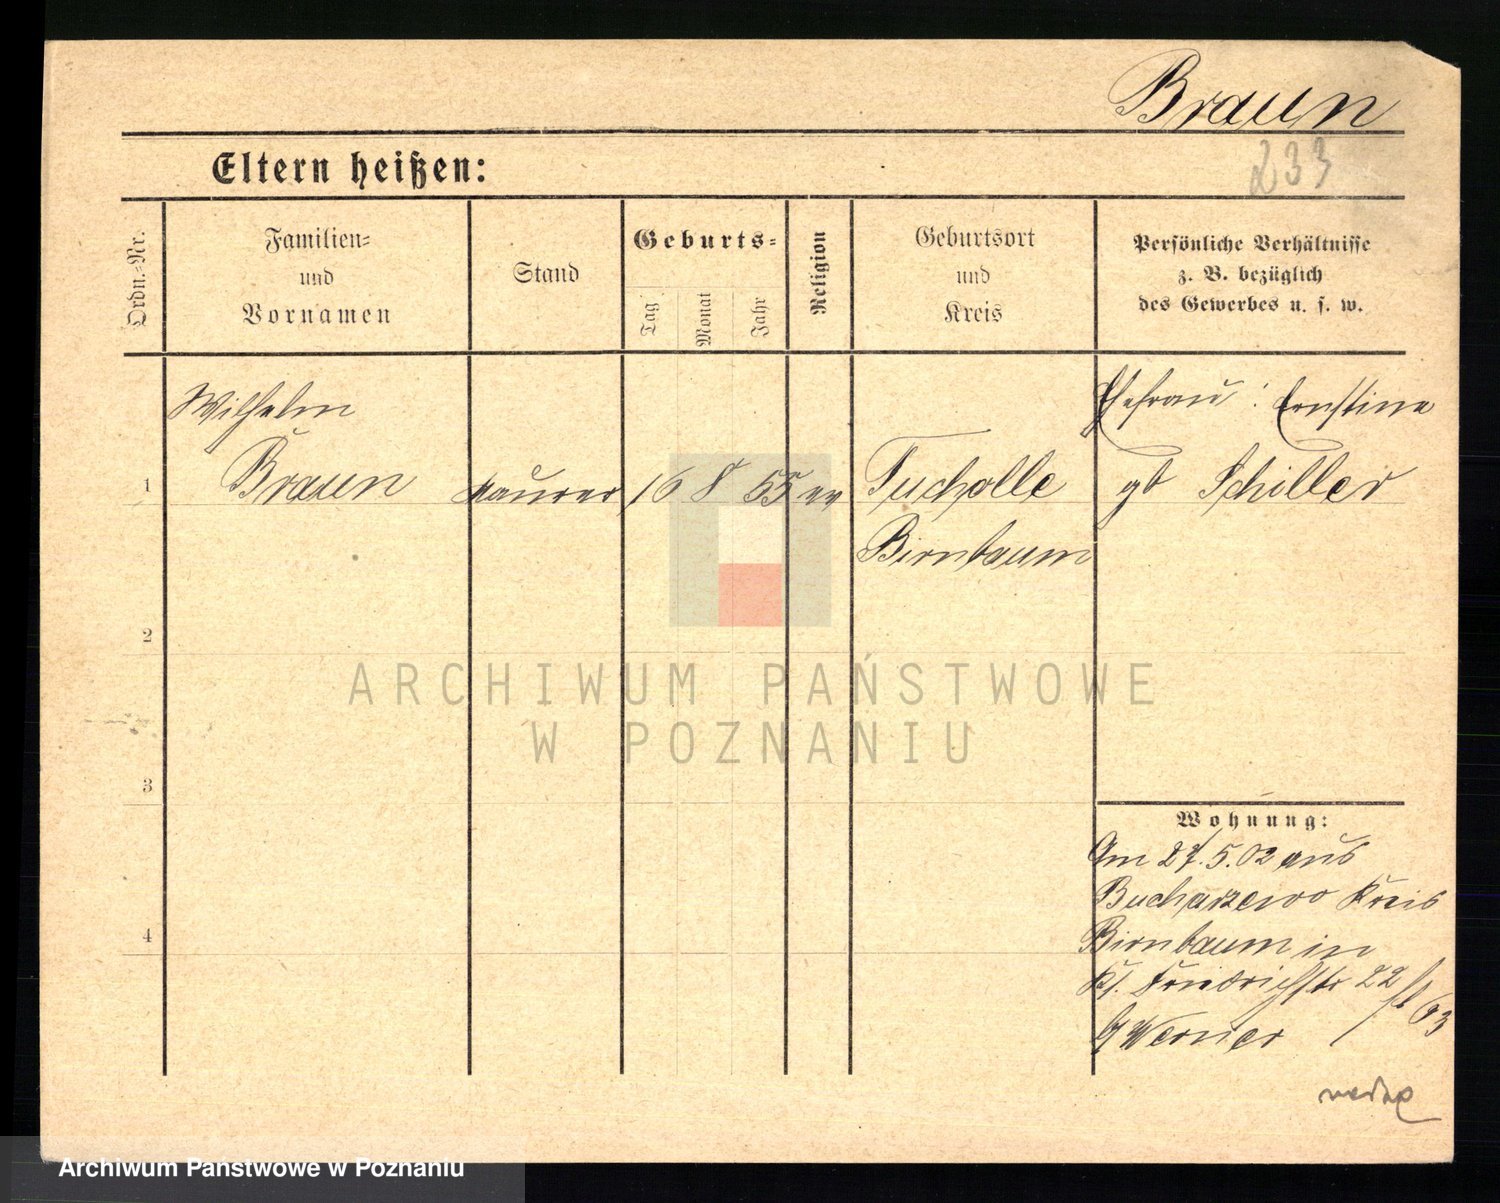 Braun
233
Eltern heißen:
Ordn.-Nr.
Familien-
und
Vornamen
Stand
Geburts-
Tag
Monat
Jahr
Religion
Geburtsort
und
Kreis
Persönliche Verhältnisse
z. B. bezüglich
des Gewerbes u. s. w.
Wilhelm
Ehefrau: Ernstine
1 Braun Maurer 16 8 55 ev Tucholle gb Schiller
Birnbaum
2
ARCHIWUM PAŃSTWOWE
W POZNANIU
3
Wohnung:
Am 27.5.02 aus
Bucharzewo Kreis
4 Birnbaum in
Friedrichstr 22
Werner
Archiwum Państwowe w Poznaniu